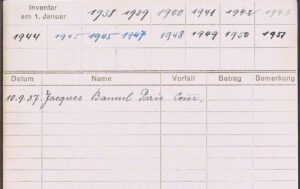 Inventar 1938 1939 1940 1941 1942 1943
am 1. Januar
1944 1945 1945 1947 1948 1949 1950 1951
Datum Name Vorfall Betrag Bemerkung
10.9.37. Jacques Paris Com.